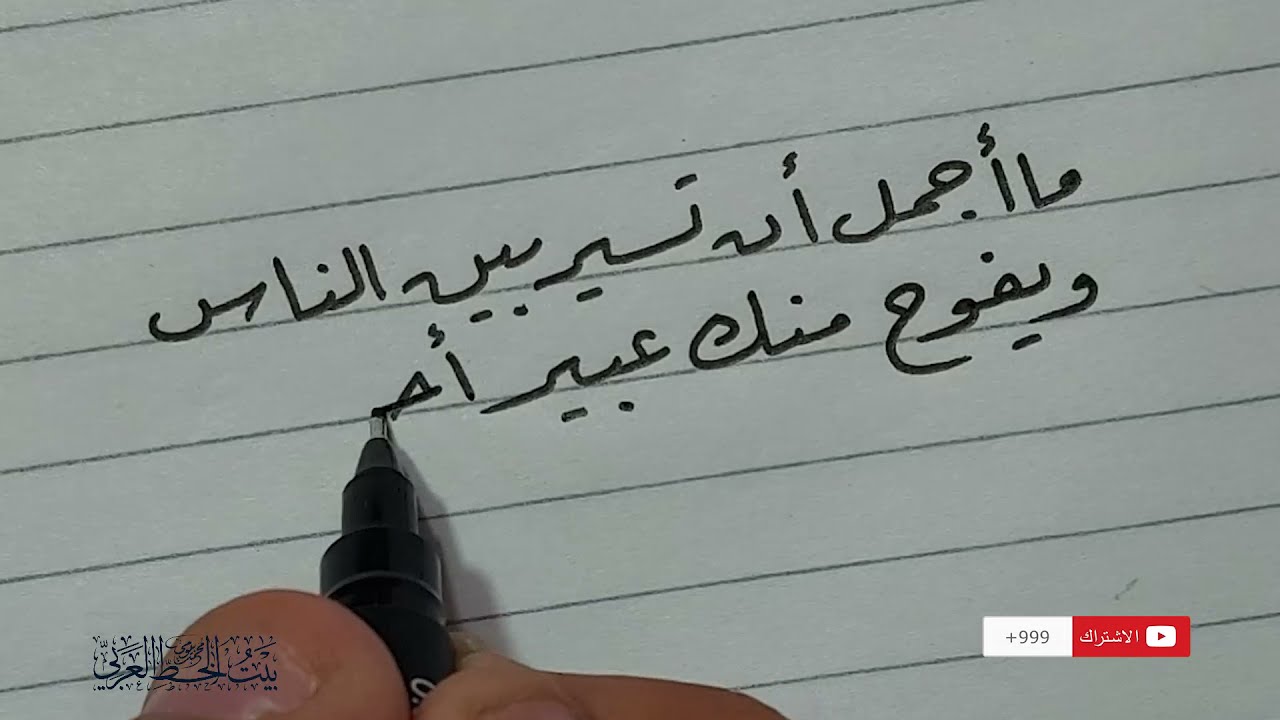 ما أجمل أن تسير بين الناس
ويفوح منك عبير أحـ
بيت الخط العربي
الاشتراك
+999